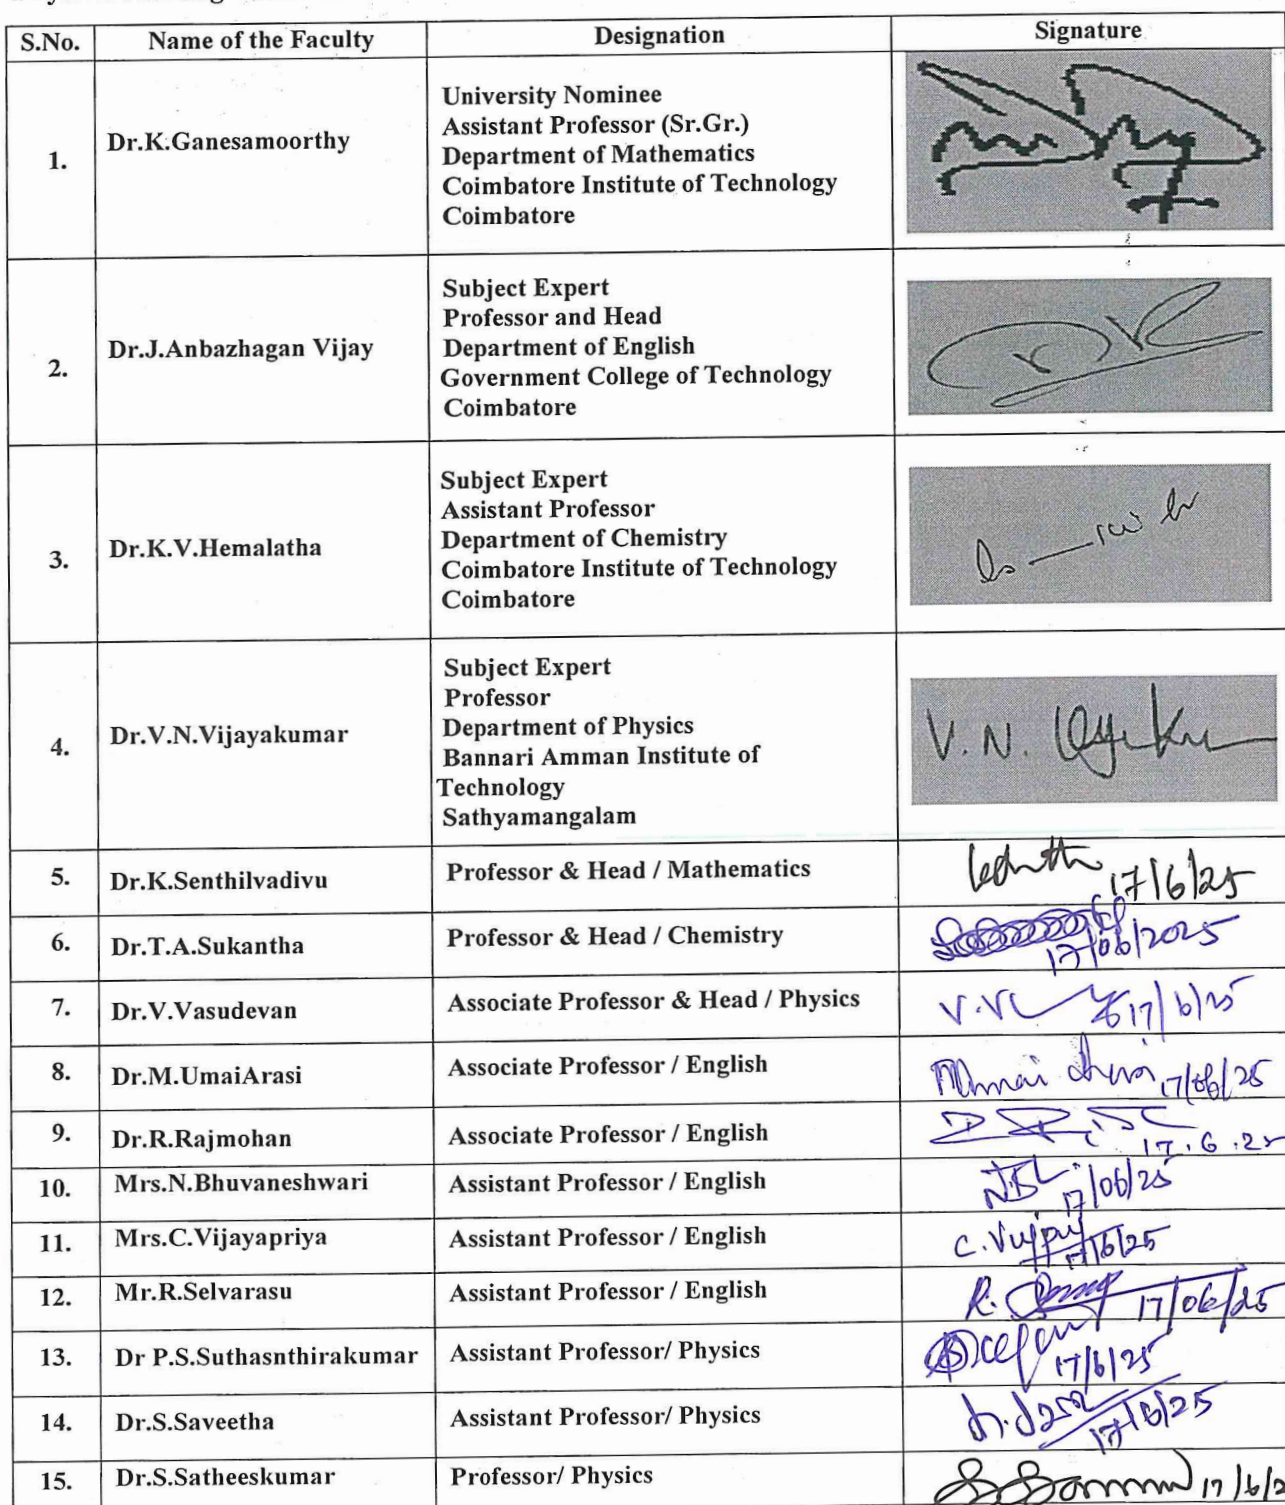 S.No. Name of the Faculty Designation Signature
1. Dr.K.Ganesamoorthy
University Nominee
Assistant Professor (Sr.Gr.)
Department of Mathematics
Coimbatore Institute of Technology
Coimbatore
2. Dr.J.Anbazhagan Vijay
Subject Expert
Professor and Head
Department of English
Government College of Technology
Coimbatore
3. Dr.K.V.Hemalatha
Subject Expert
Assistant Professor
Department of Chemistry
Coimbatore Institute of Technology
Coimbatore
4. Dr.V.N.Vijayakumar
Subject Expert
Professor
Department of Physics
Bannari Amman Institute of
Technology
Sathyamangalam
V.N.
5. Dr.K.Senthilvadivu Professor & Head / Mathematics 17/6/25
6. Dr.T.A.Sukantha Professor & Head / Chemistry 17/06/2025
7. Dr.V.Vasudevan Associate Professor & Head / Physics 17/6/25
8. Dr.M.UmaiArasi Associate Professor / English 17/06/25
9. Dr.R.Rajmohan Associate Professor / English 17.6.25
10. Mrs.N.Bhuvaneshwari Assistant Professor / English 17/06/25
11. Mrs.C.Vijayapriya Assistant Professor / English 17/6/25
12. Mr.R.Selvarasu Assistant Professor / English 17/06/25
13. Dr P.S.Suthasnthirakumar Assistant Professor/ Physics 17/6/25
14. Dr.S.Saveetha Assistant Professor/ Physics 17/6/25
15. Dr.S.Satheeskumar Professor/ Physics 17/6/2